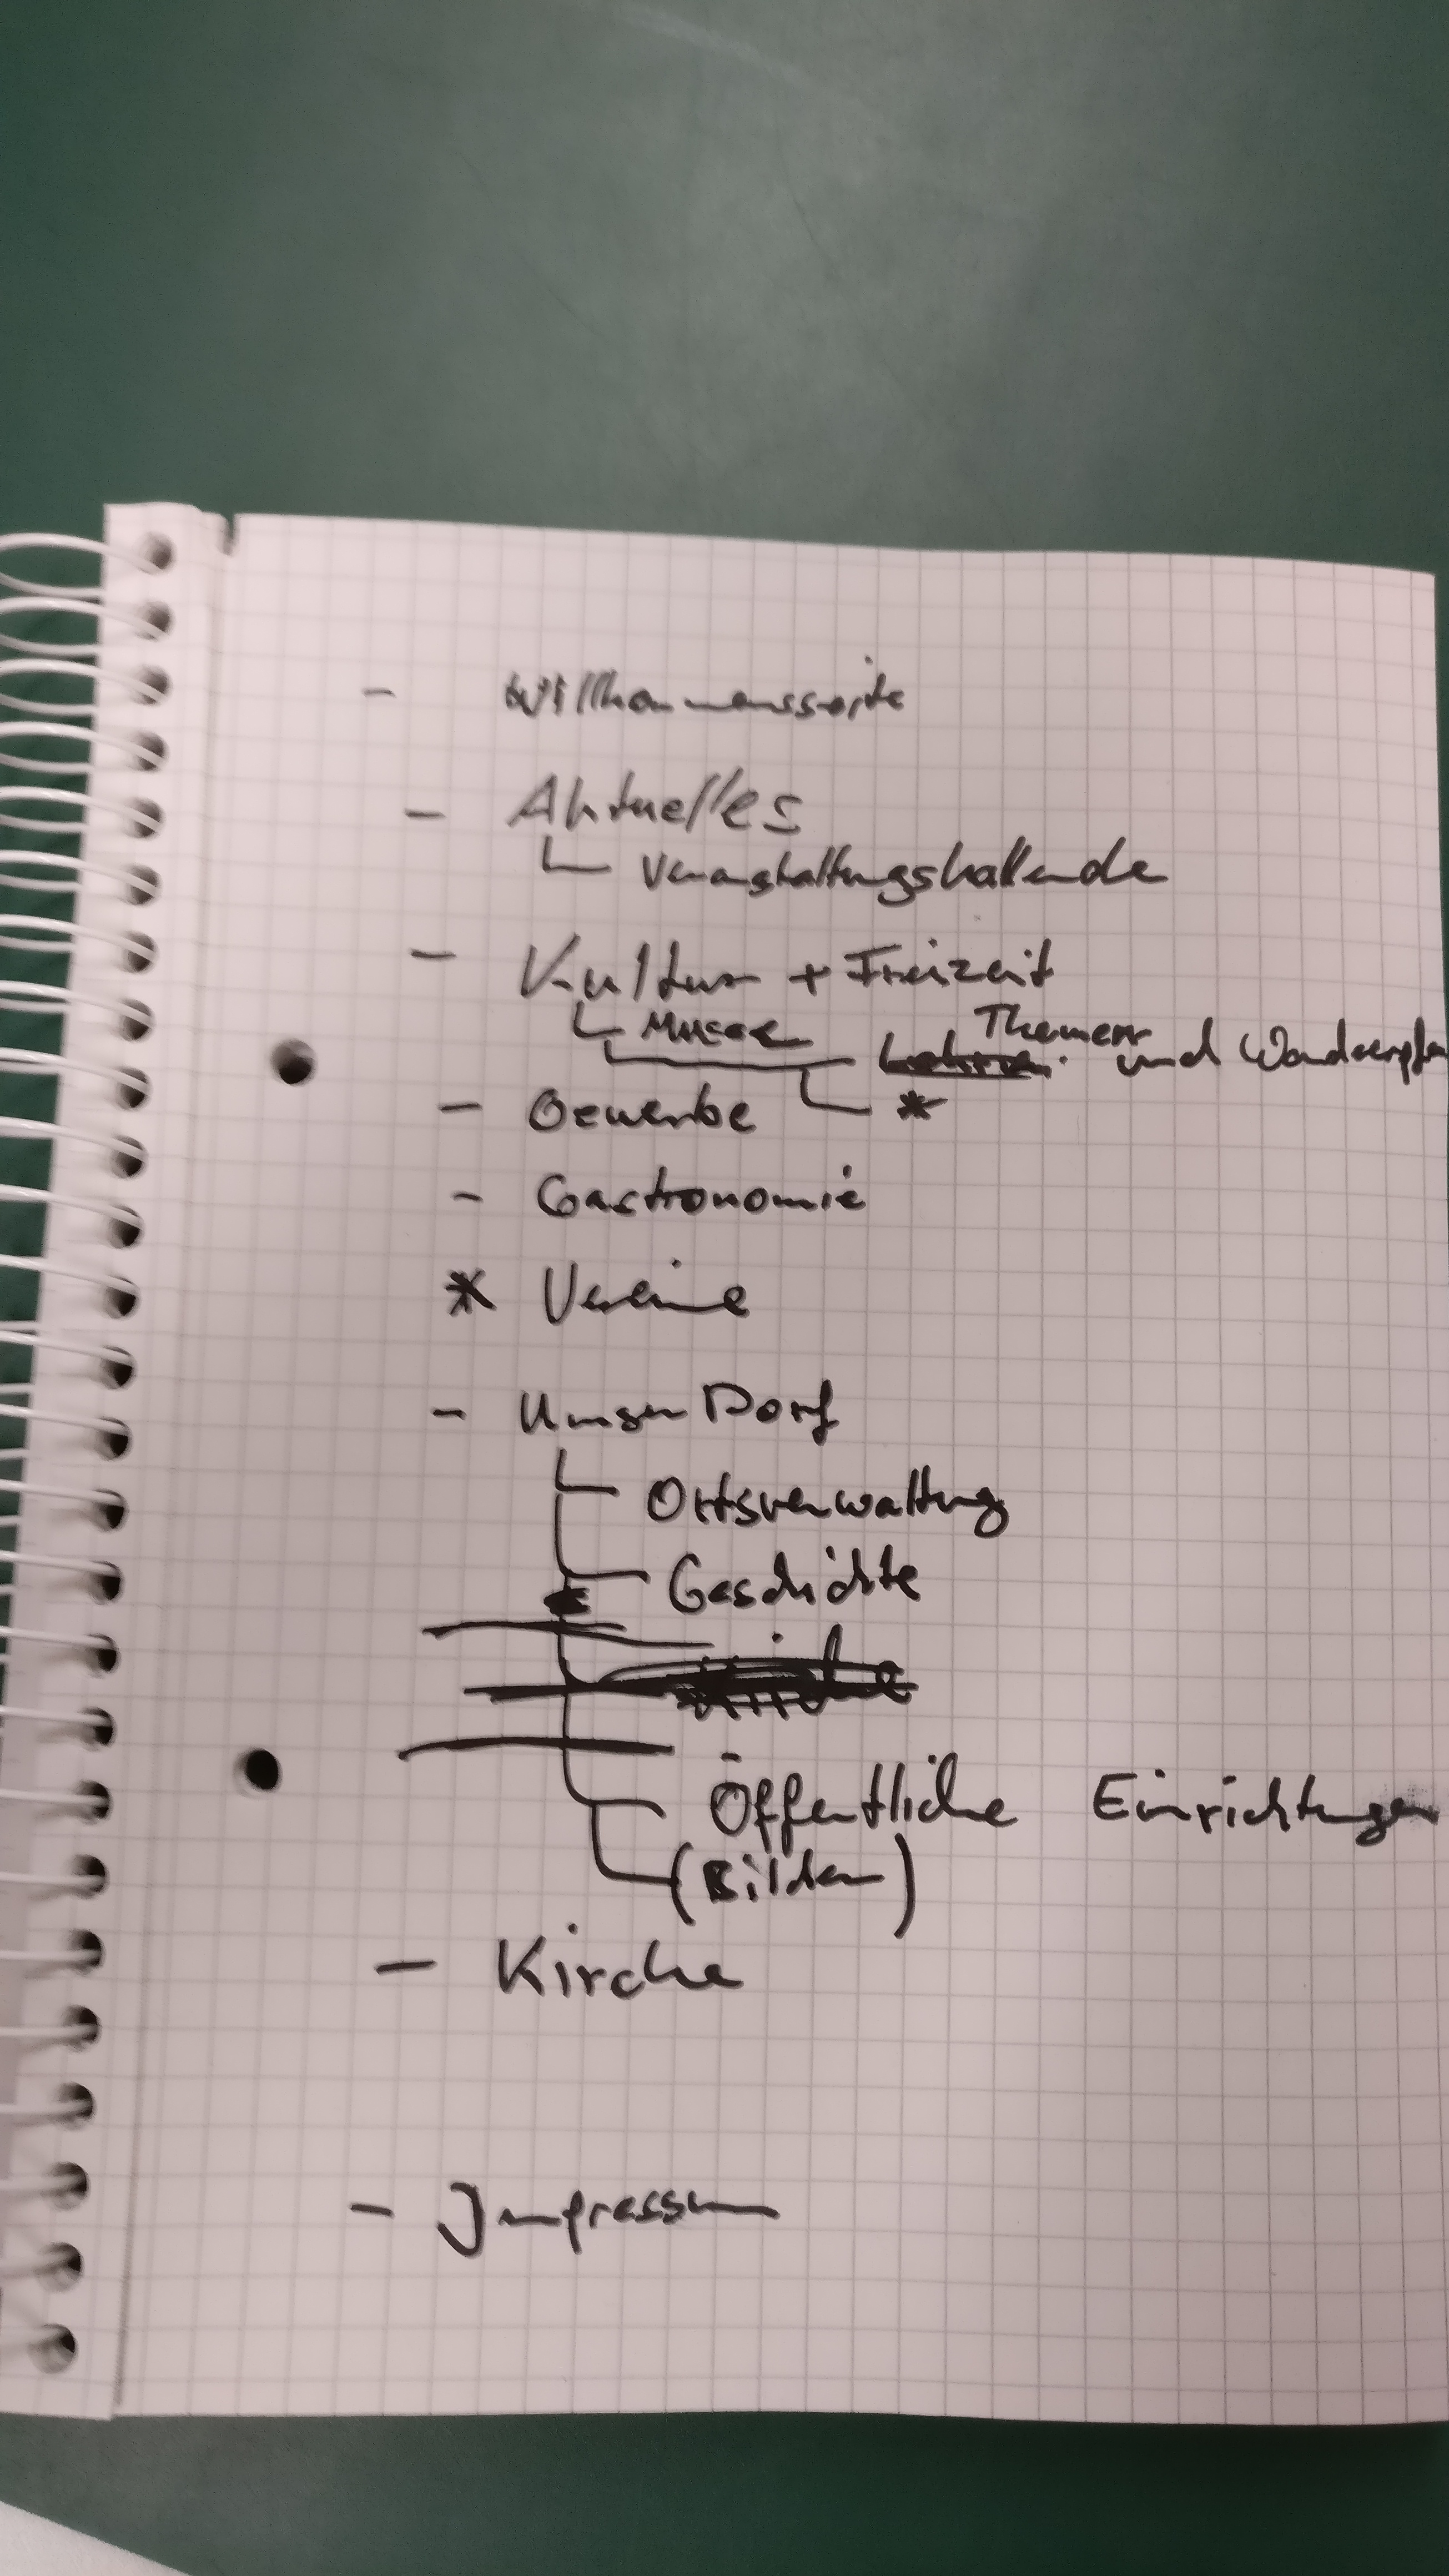 - Willkommensseite
- Aktuelles
Veranstaltungskalender
- Kultur + Freizeit
Museen
Themen und Wander
*
- Gewerbe
- Gastronomie
* Vereine
- Unser Dorf
Ortsverwaltung
Geschichte
Öffentliche Einrichtungen
(Bilder)
- Kirche
- Impressum